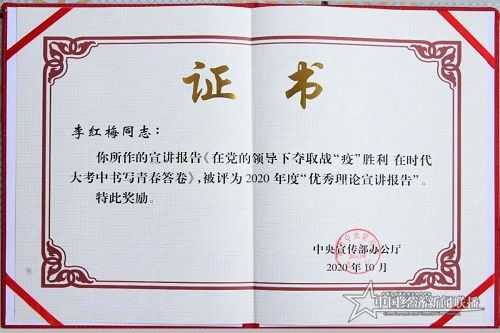 证书
李红梅同志：
你所作的宣讲报告《在党的领导下夺取战“疫”胜利 在时代
大考中书写青春答卷》，被评为2020年度“优秀理论宣讲报告”。
特此奖励。
中央宣传部办公厅
2020年10月
中国经济新闻联播